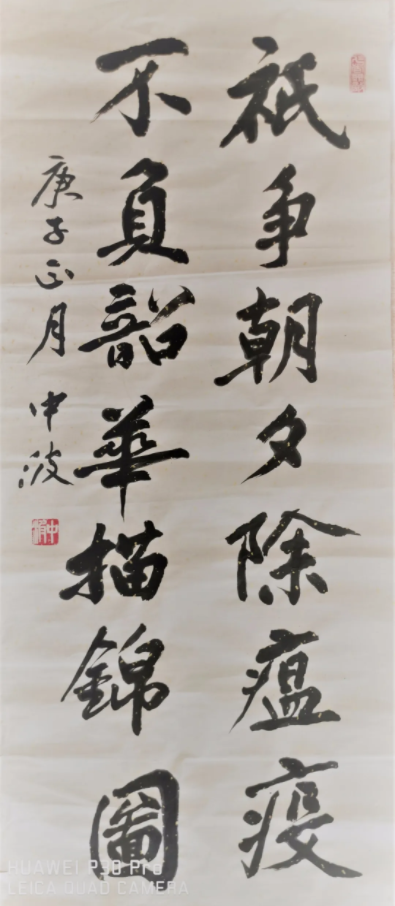 祇争朝夕除瘟疫
不負韶華描錦圖
庚子正月 中波
HUAWEI P30 Pro
LEICA QUAD CAMERA